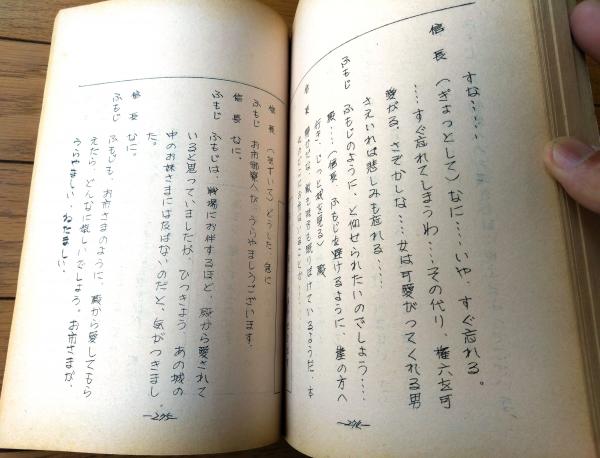 すな……
信長　（ぎょっとして）なに……いや、すぐ忘れる。
……すぐ忘れてしまうわ……その代り、権六を可
愛がる、さぞかしな……女は可愛がってくれる男
さえいれば悲しみも忘れる……
ふもじ　ふもじのように、と仰せられたいのでしょう……
殿……（信長、ふもじを避けるように、崖の方へ
行き、じっと城を見る）殿
信長
信長　（気ずいて）どうした、急に
ふもじ　お市御寮人が、うらやましうございます。
信長　なに。
ふもじ　ふもじは、戦場にお伴するほど、殿から愛されて
いると思っていましたが、ひっきょう、あの城の
中のお妹さまには及ばないのだと、気がつきまし
た。
信長　なに。
ふもじ　ふもじも、お市さまのように、殿から愛してもら
えたら、どんなに楽しいでしょう。お市さまが、
うらやましい、ねたましい。